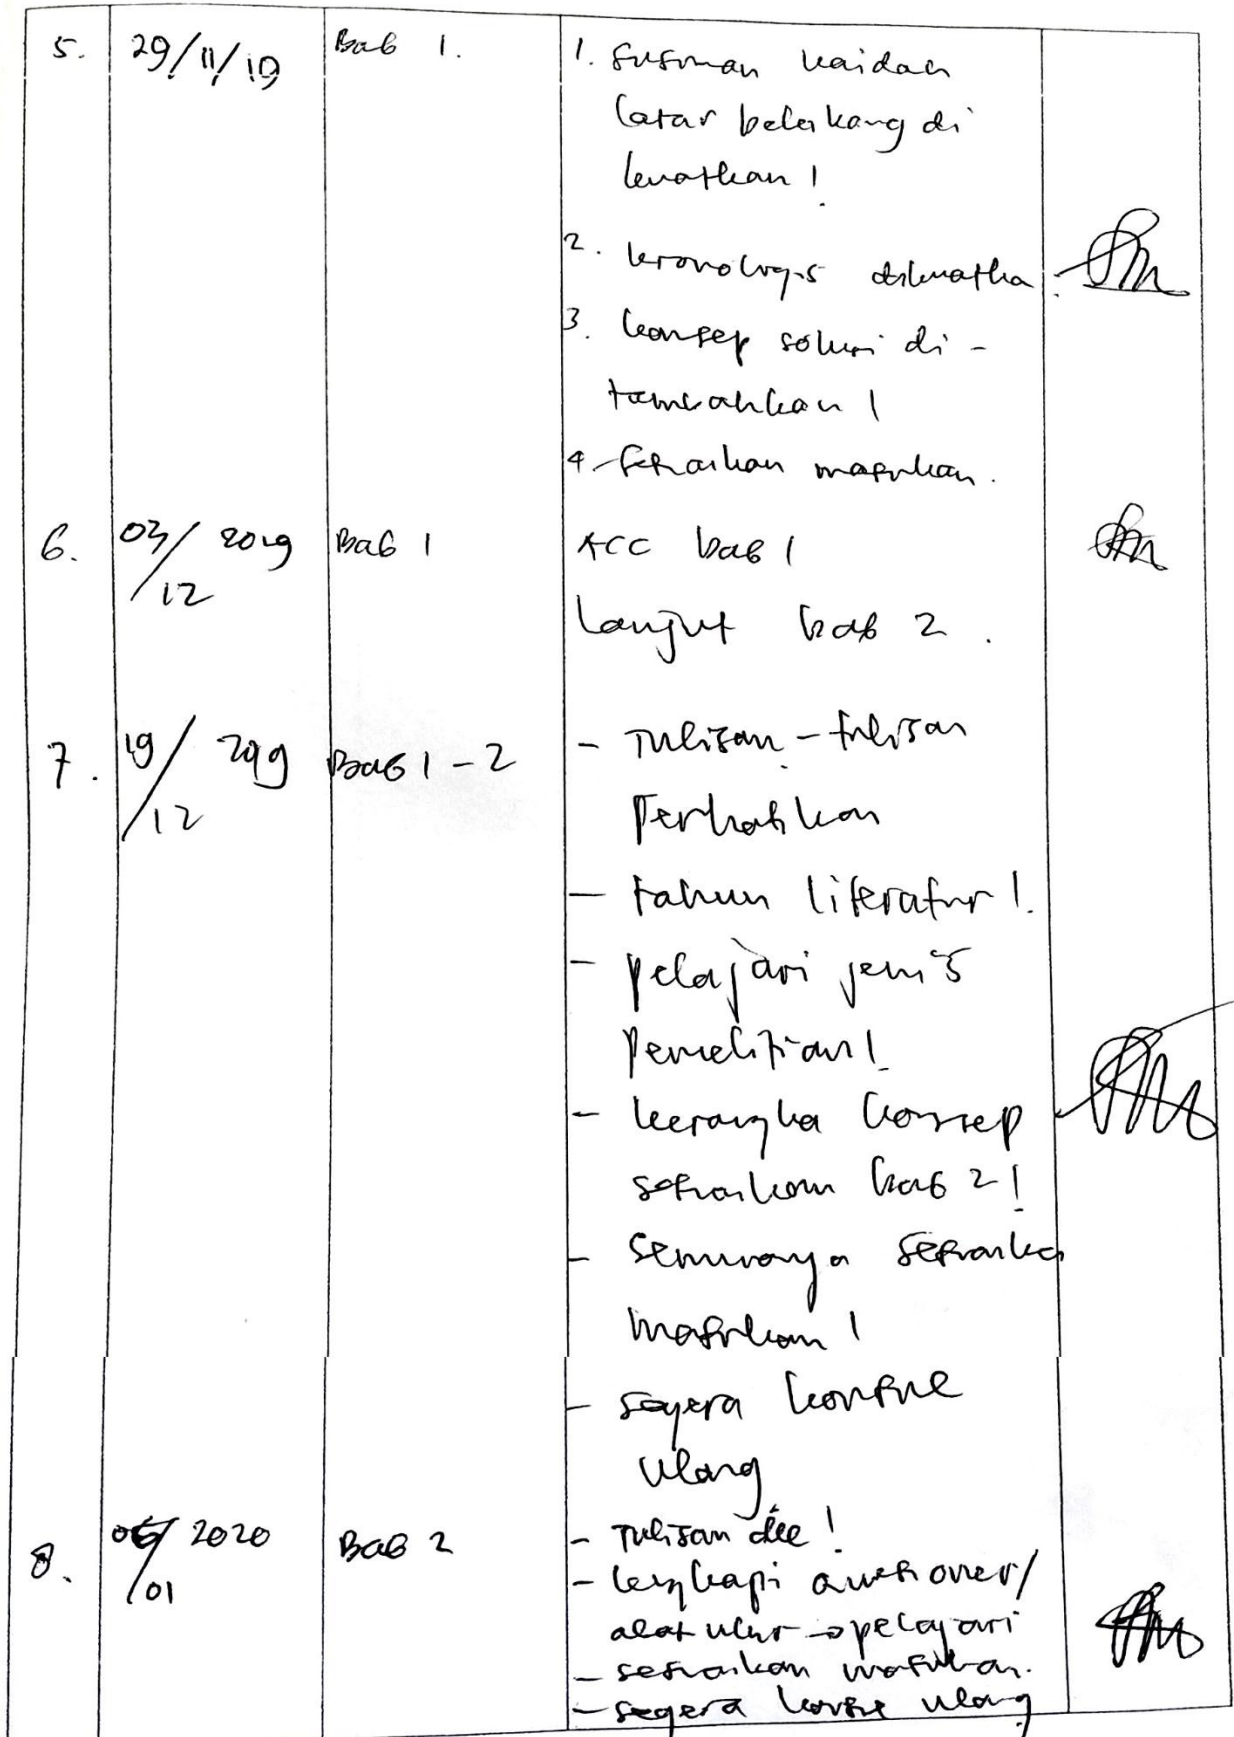 5. 29/11/19 Bab 1. 1. Susunan kaidah
latar belakang di
kuatkan !
2. kronologis dikuatka
3. konsep solusi di -
tambahkan !
4. Sesuaikan masukan.
6. 03/12 2019 Bab 1 ACC bab 1
Lanjut bab 2 .
7. 19/12 2019 Bab 1 - 2 - Tulisan - tulisan
Perhatikan
- tahun literatur !
- pelajari jenis
penelitian !
- kerangka konsep
sesuaikan bab 2 !
- Semuanya sesuaika
masukan !
- segera konsul
ulang
8. 06/01 2020 Bab 2 - Tulisan dll !
- lengkapi quesioner/
alat ukur → pelajari
- sesuaikan masukan.
- segera konsul ulang